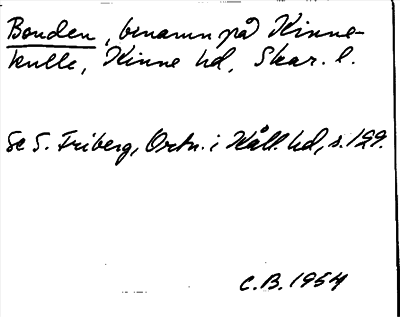 Bonden, benamn på Kinne-
kulle, Kinne hd, Skar. l.
Se S. Friberg, Ortn. i Kåll. hd, s. 199.
C.B. 1954